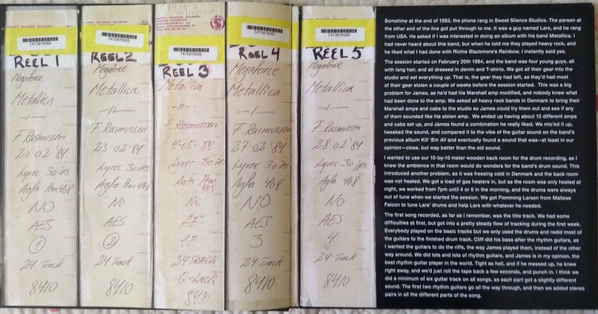 REEL 1
Megaforce
Metallica
-11-
F Rasmussen
20 02 '84
Lyrec 30 ips
Agfa 468
NO
AES
1
24 Track
8410
REEL 2
Megaforce
Metallica
-11-
F Rasmussen
23 02 '84
Lyrec 30 ips
Agfa 468
NO
AES
2
24 Track
8410
REEL 3
Metallica
-11-
F Rasmussen
Lyrec 30 ips
Agfa
NO
24 TRACK
REEL 4
Megaforce
Metallica
-11-
F Rasmussen
27 02 '84
Lyrec 30 ips
Agfa 468
NO
AES
3
24 Track
8410
REEL 5
Megaforce
Metallica
-11-
F Rasmussen
28 02 '84
Lyrec 30 ips
Agfa 468
NO
AES
4
24 Track
8410
Sometime at the end of 1983, the phone rang in Sweet Silence Studios. The person at
the other end of the line got put through to me. It was a guy named Lars, and he rang
from USA. He asked if I was interested in doing an album with his band Metallica. I
had never heard about this band, but when he told me they played heavy rock, and
he liked what I had done with Richie Blackmore's Rainbow, I instantly said yes.
The session started on February 20th 1984, and the band was four young guys, all
with long hair, and all dressed in denim and T-shirts. We got all their gear into the
studio and set everything up. That is, the gear they had left, as they'd had most
of their gear stolen a couple of weeks before the session started. This was a big
problem for James, as he'd had his Marshall amp modified, and nobody knew what
had been done to the amp. We asked all heavy rock bands in Denmark to bring their
Marshall amps and cabs to the studio so James could try them out and see if any
of them sounded like his stolen amp. We ended up having about 12 different amps
and cabs set up, and James found a combination he really liked. We mic'ed it up,
tweaked the sound, and compared it to the vibe of the guitar sound on the band's
previous album Kill 'Em All and eventually found a sound that was—at least in our
opinion—close, but way better than the old sound.
I wanted to use our 10-by-10 meter wooden back room for the drum recording, as I
knew the ambience in that room would do wonders for the band's drum sound. This
introduced another problem, as it was freezing cold in Denmark and the back room
was not heated. We got a load of gas heaters in, but as the room was only heated at
night, we worked from 7pm until 4 or 5 in the morning, and the drums were always
out of tune when we started the session. We got Flemming Larsen from Maltese
Falcon to tune Lars' drums and help Lars with whatever he needed.
The first song recorded, as far as I remember, was the title track. We had some
difficulties at first, but got into a pretty steady flow of tracking during the first week.
Everybody played on the basic tracks but we only used the drums and redid most of
the guitars to the finished drum track. Cliff did his bass after the rhythm guitars, as
I wanted the guitars to do the riffs, the way James played them, instead of the other
way around. We did lots and lots of rhythm guitars, and James is in my opinion, the
best rhythm guitar player in the world. Tight as hell, and if he messed up, he knew
right away, and we'd just roll the tape back a few seconds, and punch in. I think we
did a minimum of six guitar track on all songs, as each part got a slightly different
sound. The first two rhythm guitars go all the way through, and then we added stereo
pairs in all the different parts of the song.